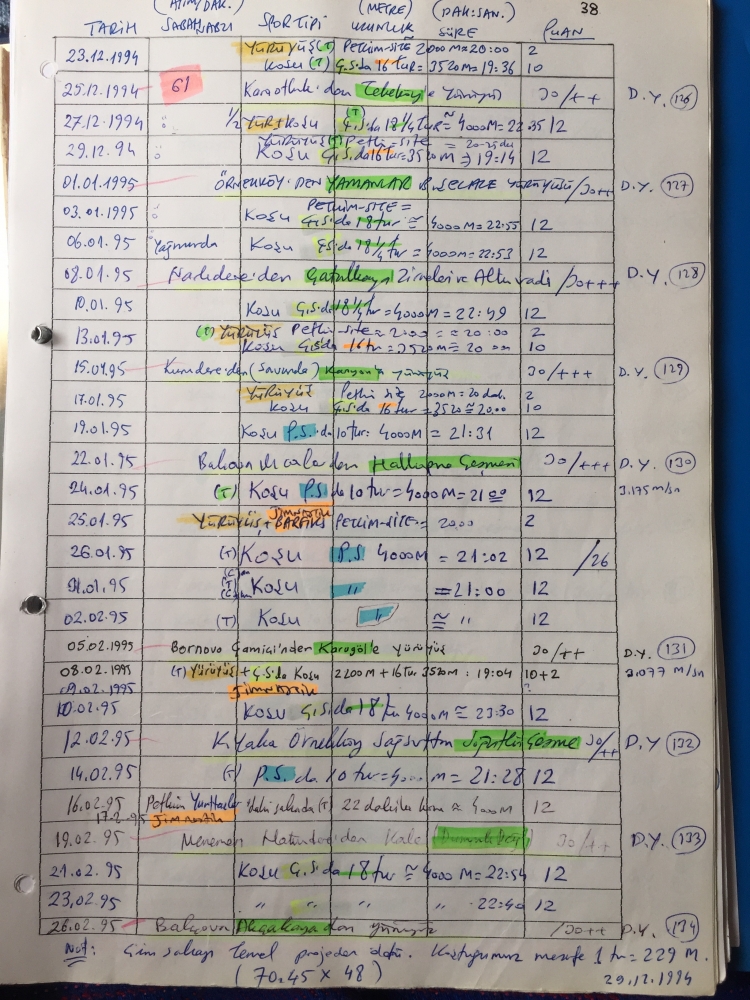 38
(ATIM/DAK.) (METRE) (DAK:SAN.)
TARİH SABAH NABZI SPOR TİPİ UZUNLUK SÜRE PUAN
23.12.1994 YÜRÜYÜŞ (T) Petkim-site 2000M=20:00 2
KOŞU (T) G.S.da 16 tur=3520M=19:36 10
25.12.1994 61 den Tebeköy'e Yürüyüş 30/++ D.Y. 126
27.12.1994 " 1/2 YÜR+KOŞU (T) G.S.da 18 1/4 tur ≅ 4000M=22:35 12
29.12.94 " YÜRÜYÜŞ (T) Petkim-site = 20:00
KOŞU G.S.da 16 tur=3520M=19:14 12
01.01.1995 ÖRNEKKÖY'DEN YAMANLAR YÜRÜYÜŞÜ /30++ D.Y. 127
PETKİM-SİTE=
03.01.1995 " KOŞU G.S.da 18 tur ≅ 4000M=22:55 12
06.01.95 Yağmurda KOŞU G.S.da 18 1/4 tur = 4000M=22:53 12
08.01.95 Narlıdere'den Çatalkaya Zirveleri ve Altın vadi /30+++ D.Y. 128
10.01.95 KOŞU G.S.da 18 1/4 tur=4000M=22:49 12
13.01.95 (T) YÜRÜYÜŞ Petkim-site = 2000 = ≅ 20:00 2
KOŞU G.S.da 16 tur=3520M= 20:00 10
15.01.95 den Kanyon'a yürüyüş 30/+++ D.Y. 129
17.01.95 YÜRÜYÜŞ Petkim site 2000M=20 dak. 2
KOŞU G.S.da 16 tur=3520≅20.00 10
19.01.95 KOŞU P.S.da 10 tur: 4000M = 21:31 12
22.01.95 Balçova dan Halkapınar Çeşmesi 30/+++ D.Y. 130
24.01.95 (T) KOŞU P.S da 10 tur=4000M=21:00 12 3.175 m/sn
JİMNASTİK
25.01.95 YÜRÜYÜŞ+BARFİKS PETKİM-SİTE= 20.00 2
26.01.95 (T) KOŞU P.S 4000M = 21:02 12 /26
31.01.95 (T) KOŞU " =21:00 12
02.02.95 (T) KOŞU " ≅ " 12
05.02.1995 Bornova Çamiçi'nden Karagöl'e yürüyüş 30/++ D.Y. 131
08.02.1995 (T) Yürüyüş + G.S.da Koşu 2200M+16 tur 3520M: 19:04 10+2 3.077 m/sn
09.02.1995 Jimnastik
10.02.95 KOŞU G.S.da 18 tur 4000M ≅ 23:30 12
12.02.95 K.Yaka Örnekköy Çeşme 30/++ D.Y 132
14.02.95 (T) P.S. da 10 tur=4000M=21:28 12
16.02.95 Petkim Yurtlar daki sahada (T) 22 dakika koşu ≅ 4000M 12
17.2.95 Jimnastik
19.02.95 Menemen den Kale 30/++ D.Y. 133
21.02.95 KOŞU G.S.da 18 tur ≅ 4000 M=22:54 12
23.02.95 " " " " 22:40 12
26.02.95 Balçova Akçakaya dan yürüyüş /30++ D.Y. 134
Not: Çim sahayı temel projeden Koştuğumuz mesafe 1 tur=229 M.
(70.45 x 48) 29.12.1994